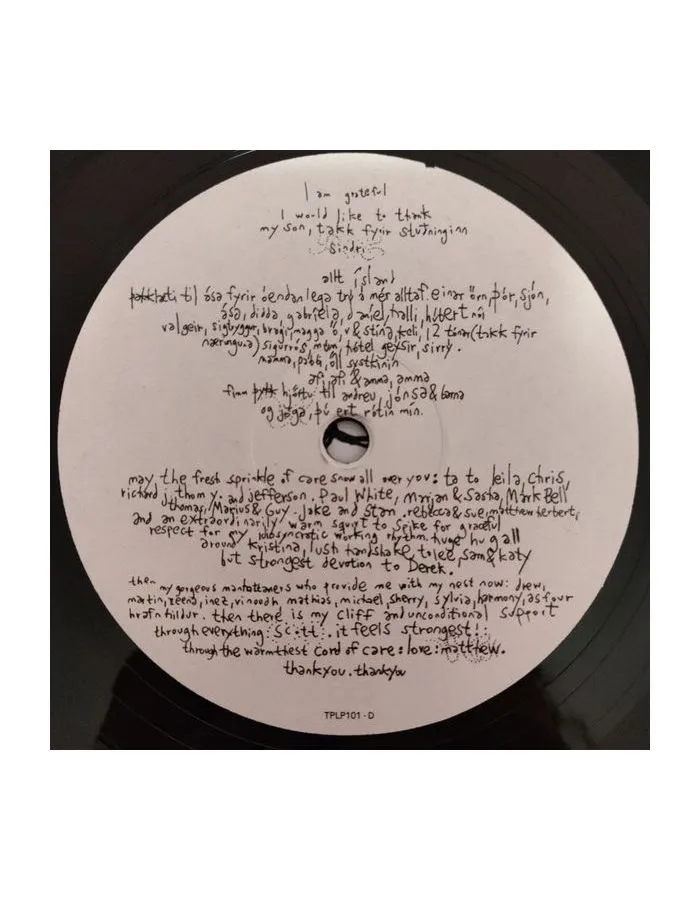 I am grateful
I would like to thank
my son, takk fyrir stuðninginn
Sindri
allt ísland
þakklæti til ása fyrir óendanlega trú á mér alltaf. einar örn, þór, sjón,
ása, didda, gabríela, daníel, halli, húbert nói
valgeir, sigtryggur, bragi, magga ö, v & stína, keli, 12 tónar (takk fyrir
næringuna) sigurrós, múm, hótel geysir, sirrý.
mamma, pabbi, öll systkinin
afi, afi & amma, amma
hjörtu til andreu, jónsa &
og jóga, þú ert rótin mín.
may the fresh sprinkle of care snow all over you: ta to leila, chris,
richard j, thom y. and jefferson. Paul White, Marjan & Sasha, Mark Bell
thomas, Marius & Guy. Jake and Stan. rebecca & sue, matthew herbert,
and an extraordinarily warm squirt to Spike for graceful
respect for my idiosyncratic working rhythm. huge hug all
around kristina, lush handshake to lee, sam & katy
but strongest devotion to Derek.
then my gorgeous manhattaners who provide me with my nest now: drew,
martin, inez, vinoodh mathias, michael, sherry, sylvia, harmony, as four
hrafnhildur. then there is my cliff and unconditional support
through everything: scott. it feels strongest!
through the warmthest cord of care: love: matthew.
thankyou. thankyou
TPLP101 - D